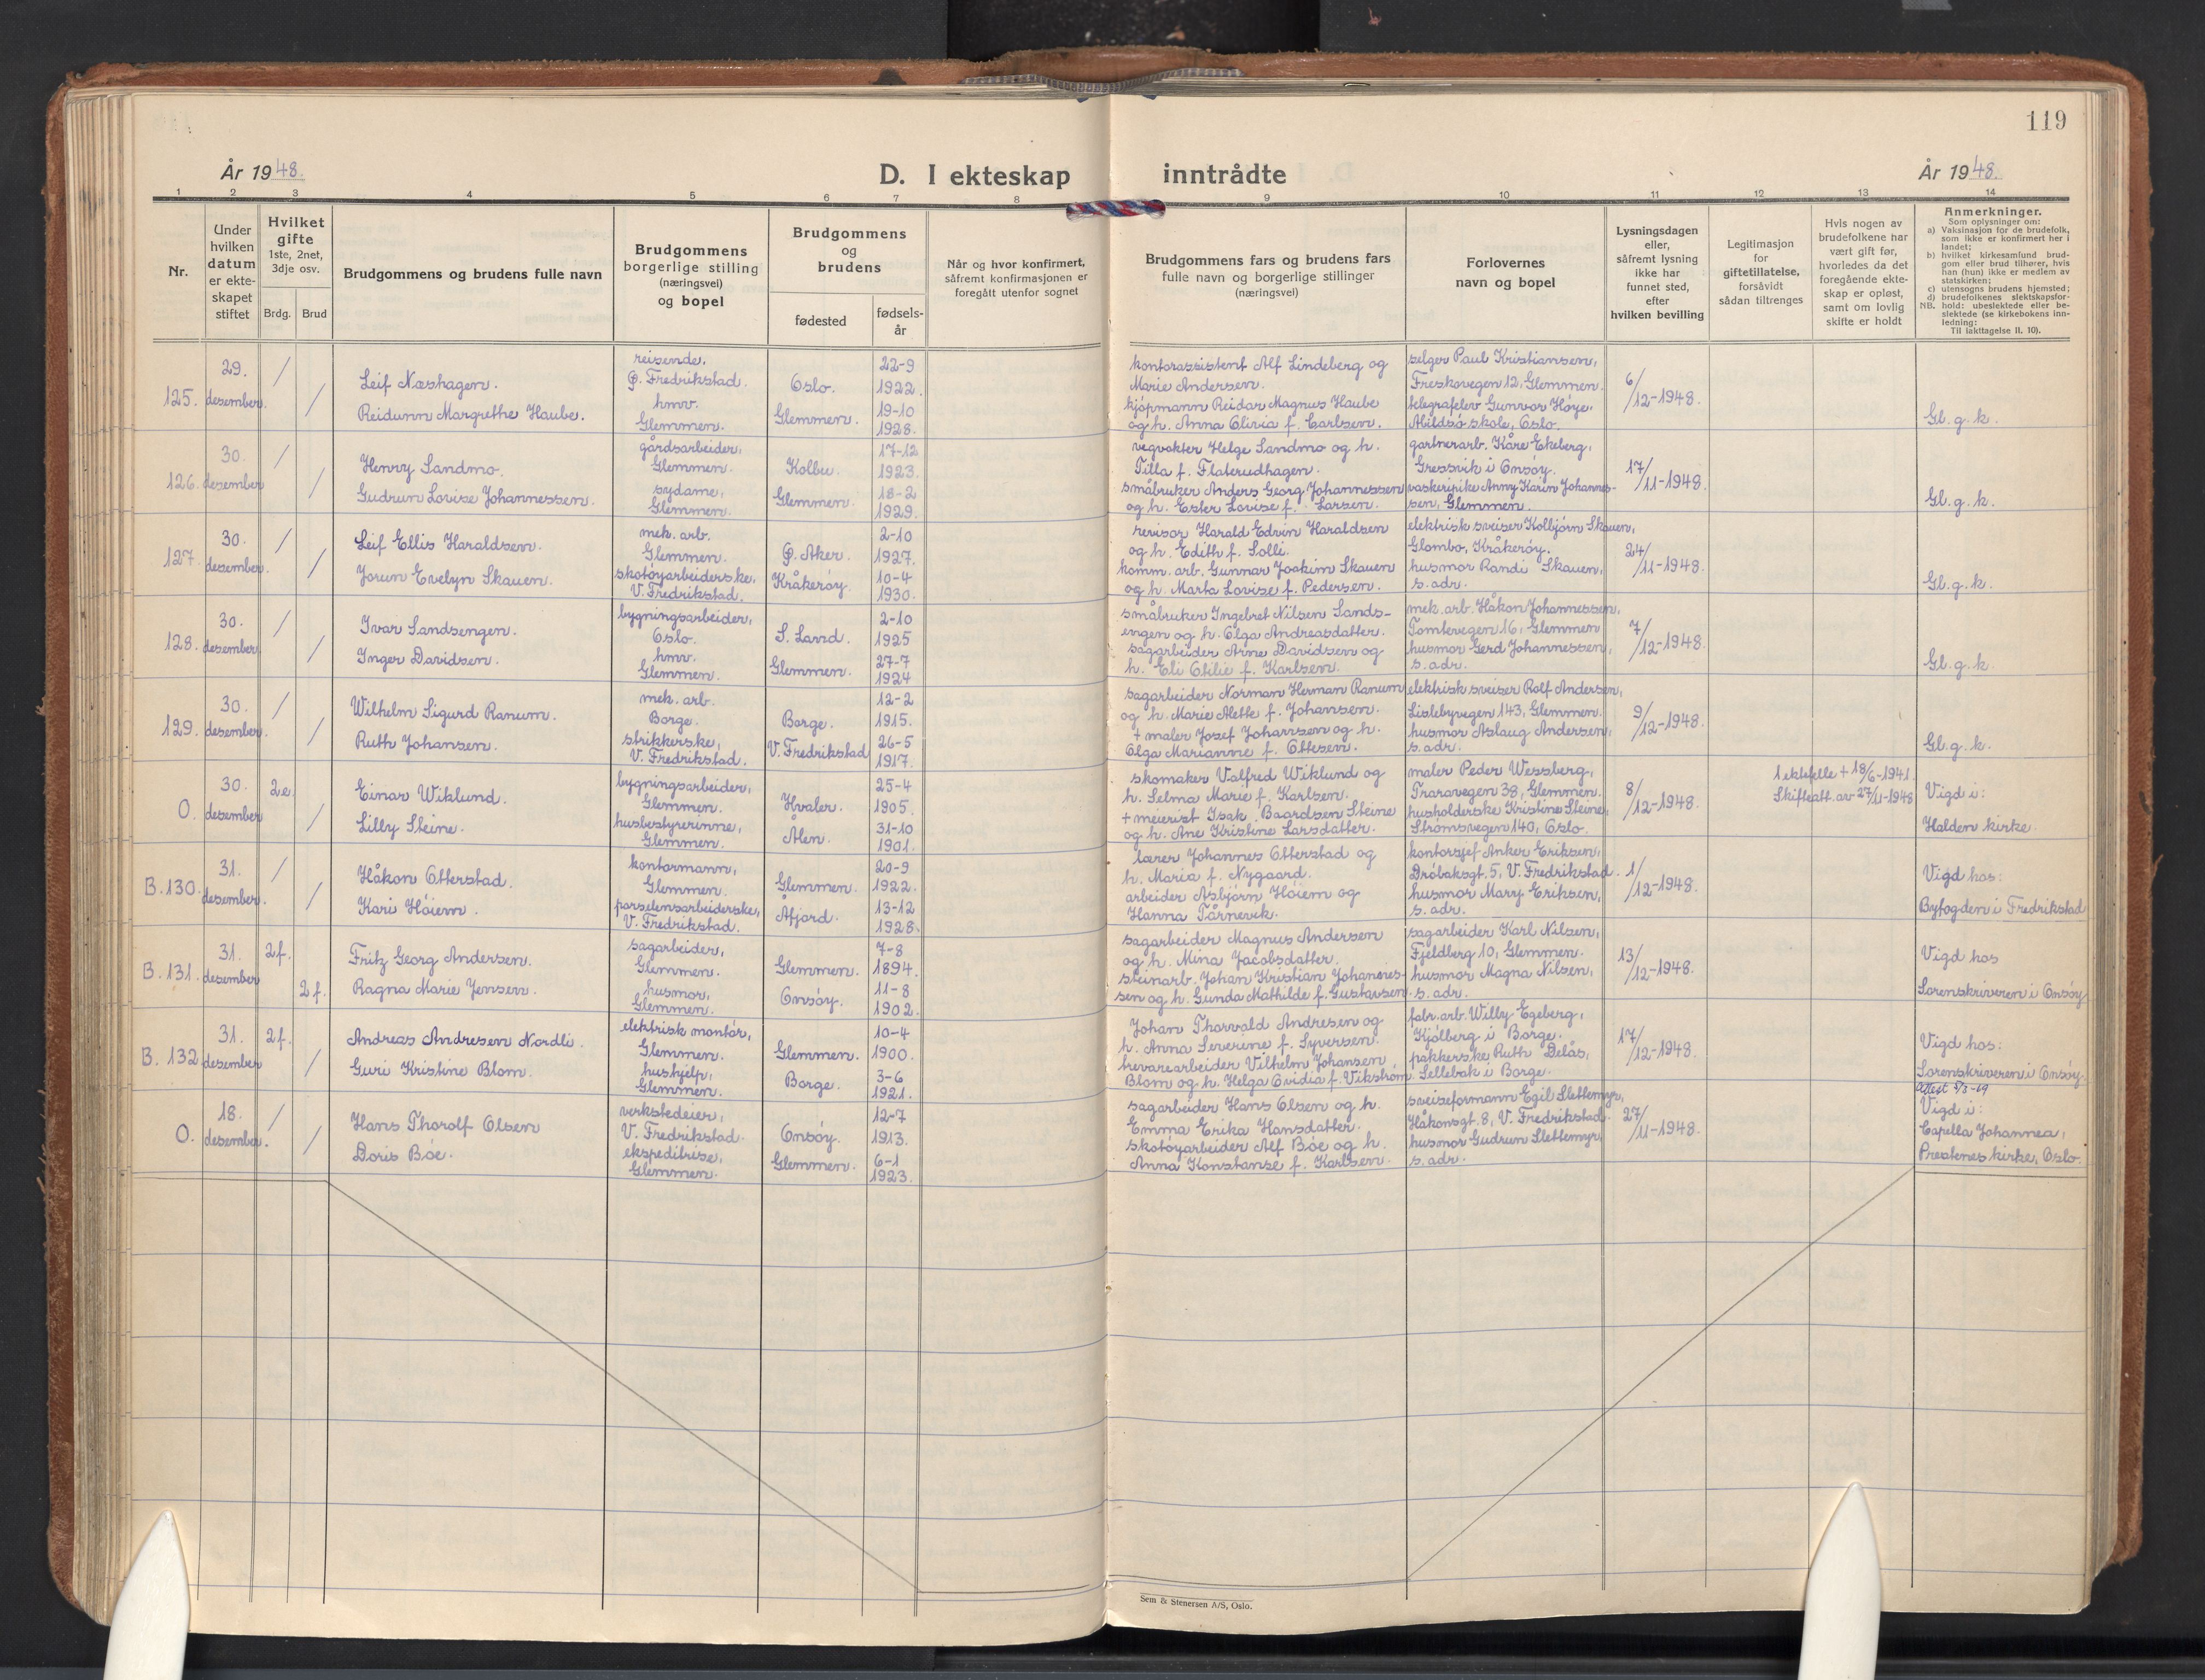 119
År 1948.
D. I ekteskap inntrådte
År 1948.
1 2 3 4 5 6 7 8 9 10 11 12 13 14
Nr.
Under hvilken datum er ekteskapet stiftet
Hvilket gifte
1ste, 2net, 3dje osv.
Brdg. Brud
Brudgommens og brudens fulle navn
Brudgommens
borgerlige stilling
(næringsvei)
og bopel
Brudgommens
og
brudens
fødested
fødsels-
år
Når og hvor konfirmert,
såfremt konfirmasjonen er
foregått utenfor sognet
Brudgommens fars og brudens fars
fulle navn og borgerlige stillinger
(næringsvei)
Forlovernes
navn og bopel
Lysningsdagen
eller,
såfremt lysning
ikke har
funnet sted,
efter
hvilken bevilling
Legitimasjon
for
giftetillatelse,
forsåvidt
sådan tiltrenges
Hvis nogen av
brudefolkene har
vært gift før,
hvorledes da det
foregående ekte-
skap er opløst,
samt om lovlig
skifte er holdt
Anmerkninger.
Som oplysninger om:
a) Vaksinasjon for de brudefolk,
som ikke er konfirmert her i
landet;
b) hvilket kirkesamfund brud-
gom eller brud tilhører, hvis
han (hun) ikke er medlem av
statskirken;
c) utensogns brudens hjemsted;
d) brudefolkenes slektskapsfor-
NB. hold: ubeslektede eller be-
slektede (se kirkebokens inn-
ledning:
Til iakttagelse II. 10).
125. 29. desember. / /
Leif Næshagen.
Reidunn Margrethe Haube.
reisende,
Ø. Fredrikstad.
hmv.
Glemmen.
Oslo.
Glemmen.
22-9
1922.
19-10
1928.
kontorassistent Alf Lindeberg og
Marie Andersen.
kjøpmann Reidar Magnus Haube
og h. Anna Olivia f. Carlsen.
selger Paul Kristiansen,
Freskovegen 12, Glemmen.
telegrafelev Gunvor Høye,
Abildsø skole, Oslo.
6/12-1948.
Gl. g. k.
126. 30. desember / /
Henry Sandmo.
Gudrun Lovise Johannessen.
gårdsarbeider,
Glemmen.
sydame,
Glemmen.
Kolbu.
Glemmen.
17-12
1923.
18-2
1929.
vegvokter Helge Sandmo og h.
Tilla f. Flaterudhagen.
småbruker Anders Georg Johannessen
og h. Ester Lovise f. Larsen.
gartnerarb. Kåre Ekeberg,
Gressvik i Onsøy.
vaskeripike Anny Karin Johannes-
sen, Glemmen.
17/11-1948.
Gl. g. k.
127. 30. desember. / /
Leif Ellis Haraldsen.
Jorun Evelyn Skauen.
mek. arb.
Glemmen.
skotøyarbeiderske,
V. Fredrikstad.
Ø. Aker.
Kråkerøy.
2-10
1927.
10-4
1930.
revisor Harald Edvin Haraldsen
og h. Edith f. Solli.
komm. arb. Gunnar Joakim Skauen
og h. Marta Lovise f. Pedersen.
elektrisk sveiser Kolbjørn Skauen,
Glombo, Kråkerøy.
husmor Randi Skauen,
s. adr.
24/11-1948.
Gl. g. k.
128. 30. desember. / /
Ivar Sandsengen.
Inger Davidsen.
bygningsarbeider,
Oslo.
hmv.
Glemmen.
S. Land.
Glemmen.
2-10
1925
27-7
1924
småbruker Ingebret Nilsen Sands-
engen og h. Olga Andreasdatter.
sagarbeider Arne Davidsen og
h. Eli Otilie f. Karlsen.
mek. arb. Håkon Johannessen,
Tomtevegen 16, Glemmen
husmor Gerd Johannessen,
s. adr.
7/12-1948.
Gl. g. k.
129. 30. desember. / /
Wilhelm Sigurd Ranum.
Ruth Johansen.
mek. arb.
Borge.
strikkerske,
V. Fredrikstad.
Borge.
V. Fredrikstad
12-2
1915.
26-5
1917.
sagarbeider Norman Herman Ranum
og h. Marie Alette f. Johansen.
+ maler Josef Johansen og h.
Olga Marianne f. Ottesen.
elektrisk sveiser Rolf Andersen,
Lislebyvegen 143, Glemmen.
husmor Aslaug Andersen,
s. adr.
9/12-1948.
Gl. g. k.
O. 30. desember 2e. /
Einar Wiklund.
Lilly Steine.
bygningsarbeider,
Glemmen.
husbestyrerinne,
Glemmen.
Hvaler.
Ålen.
25-4
1905.
31-10
1901.
skomaker Valfred Wiklund og
h. Selma Marie f. Karlsen.
+ meierist Isak Baardsen Steine
og h. Ane Kristine Larsdatter.
maler Peder Wessberg,
Traravegen 38, Glemmen.
husholderske Kristine Steine,
Strømsvegen 140, Oslo.
8/12-1948.
1 ektefelle + 18/6-1941.
Skifteatt. av 27/11-1948
Vigd i:
Halden kirke.
B. 130. 31. desember. / /
Håkon Otterstad.
Kari Høiem.
kontormann,
Glemmen.
porselensarbeiderske,
V. Fredrikstad.
Glemmen.
Åfjord.
20-9
1922.
13-12
1928.
lærer Johannes Otterstad og
h. Maria f. Nygaard.
arbeider Asbjørn Høiem og
Hanna Tårnevik.
kontorsjef Anker Eriksen,
Drøbaksgt. 5, V. Fredrikstad.
husmor Mary Eriksen,
s. adr.
1/12-1948.
Vigd hos:
Byfogden i Fredrikstad
B. 131. 31. desember 2f. 2f.
Fritz Georg Andersen.
Ragna Marie Jensen.
sagarbeider,
Glemmen.
husmor,
Glemmen.
Glemmen.
Onsøy.
7-8
1894.
11-8
1902.
sagarbeider Magnus Andersen
og h. Mina Jacobsdatter.
steinarb. Johan Kristian Johannes-
sen og h. Gunda Mathilde f. Gustavsen.
sagarbeider Karl Nilsen,
Fjeldberg 10, Glemmen.
husmor Magna Nilsen,
s. adr.
13/12-1948.
Vigd hos
Sorenskriveren i Onsøy
B. 132. 31. desember 2f. /
Andreas Andresen Nordli.
Guri Kristine Blom.
elektrisk montør,
Glemmen.
hushjelp,
Glemmen.
Glemmen.
Borge.
10-4
1900.
3-6
1921.
Johan Thorvald Andresen og
h. Anna Severine f. Syversen.
trevarearbeider Vilhelm Johansen
Blom og h. Helga Ovidia f. Vikstrøm.
fabr. arb. Willy Egeberg,
Kjølberg i Borge.
pakkerske Ruth Delås,
Sellebak i Borge.
17/12-1948.
Vigd hos:
Sorenskriveren i Onsøy.
O. 18. desember. / /
Hans Thorolf Olsen
Doris Bøe.
verkstedeier,
V. Fredrikstad.
ekspeditrise,
Glemmen.
Onsøy.
Glemmen.
12-7
1913.
6-1
1923.
sagarbeider Hans Olsen og h.
Emma Erika Hansdatter.
skotøyarbeider Alf Bøe og h.
Anna Konstanse f. Karlsen.
sveiseformann Egil Slettemyr,
Håkonsgt. 8, V. Fredrikstad.
husmor Gudrun Slettemyr,
s. adr.
27/11-1948.
Attest 5/3-69
Vigd i:
Capella Johannea,
Prestenes kirke, Oslo.
Sem & Stenersen A/S, Oslo.